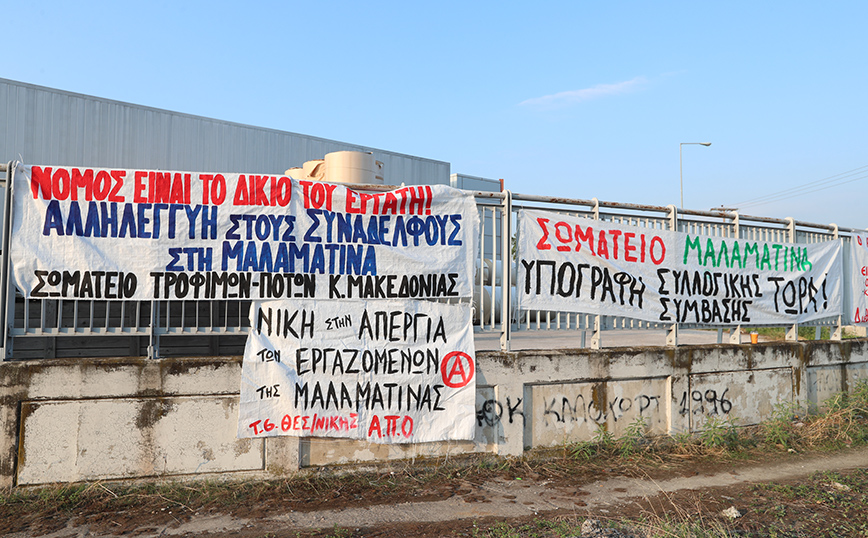 ΝΟΜΟΣ ΕΙΝΑΙ ΤΟ ΔΙΚΙΟ ΤΟΥ ΕΡΓΑΤΗ!
ΑΛΛΗΛΕΓΓΥΗ ΣΤΟΥΣ ΣΥΝΑΔΕΛΦΟΥΣ
ΣΤΗ ΜΑΛΑΜΑΤΙΝΑ
ΣΩΜΑΤΕΙΟ ΤΡΟΦΙΜΩΝ-ΠΟΤΩΝ Κ.ΜΑΚΕΔΟΝΙΑΣ
ΝΙΚΗ ΣΤΗΝ ΑΠΕΡΓΙΑ
ΤΩΝ ΕΡΓΑΖΟΜΕΝΩΝ
ΤΗΣ ΜΑΛΑΜΑΤΙΝΑΣ
Α
Τ.Θ. ΘΕΣ/ΝΙΚΗΣ Α.Π.Ο
ΣΩΜΑΤΕΙΟ ΜΑΛΑΜΑΤΙΝΑ
ΥΠΟΓΡΑΦΗ ΣΥΛΛΟΓΙΚΗΣ
ΣΥΜΒΑΣΗΣ
ΤΩΡΑ!
1996